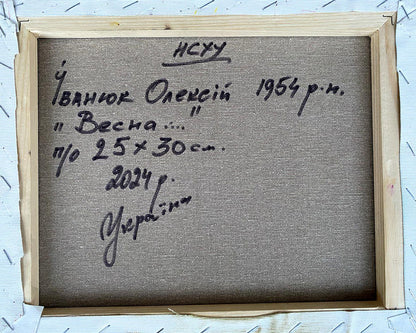 НСХУ
Іванюк Олексій 1954 р.н.
"Весна...."
п/о 25 х 30 см.
2024 р.
Україна